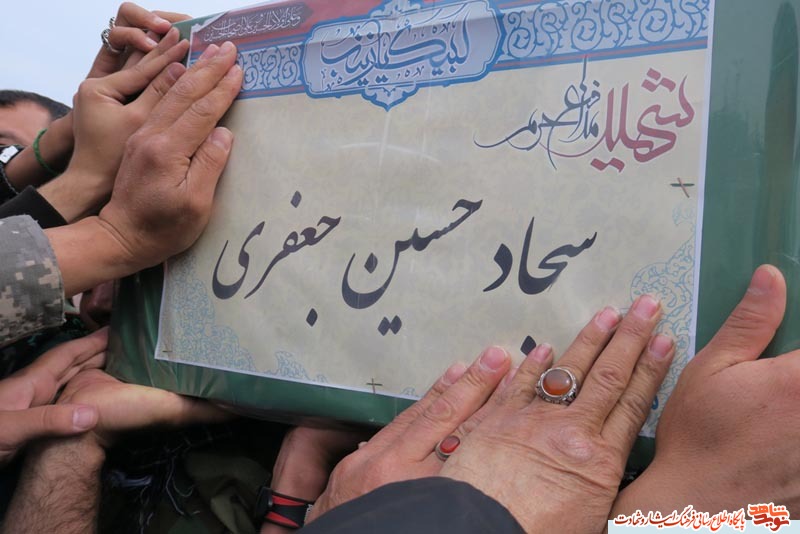 لبیک یا زینب
شهید مدافع حرم
سجاد حسین جعفری
نوید شاهد
پایگاه اطلاع رسانی فرهنگ ایثار و شهادت